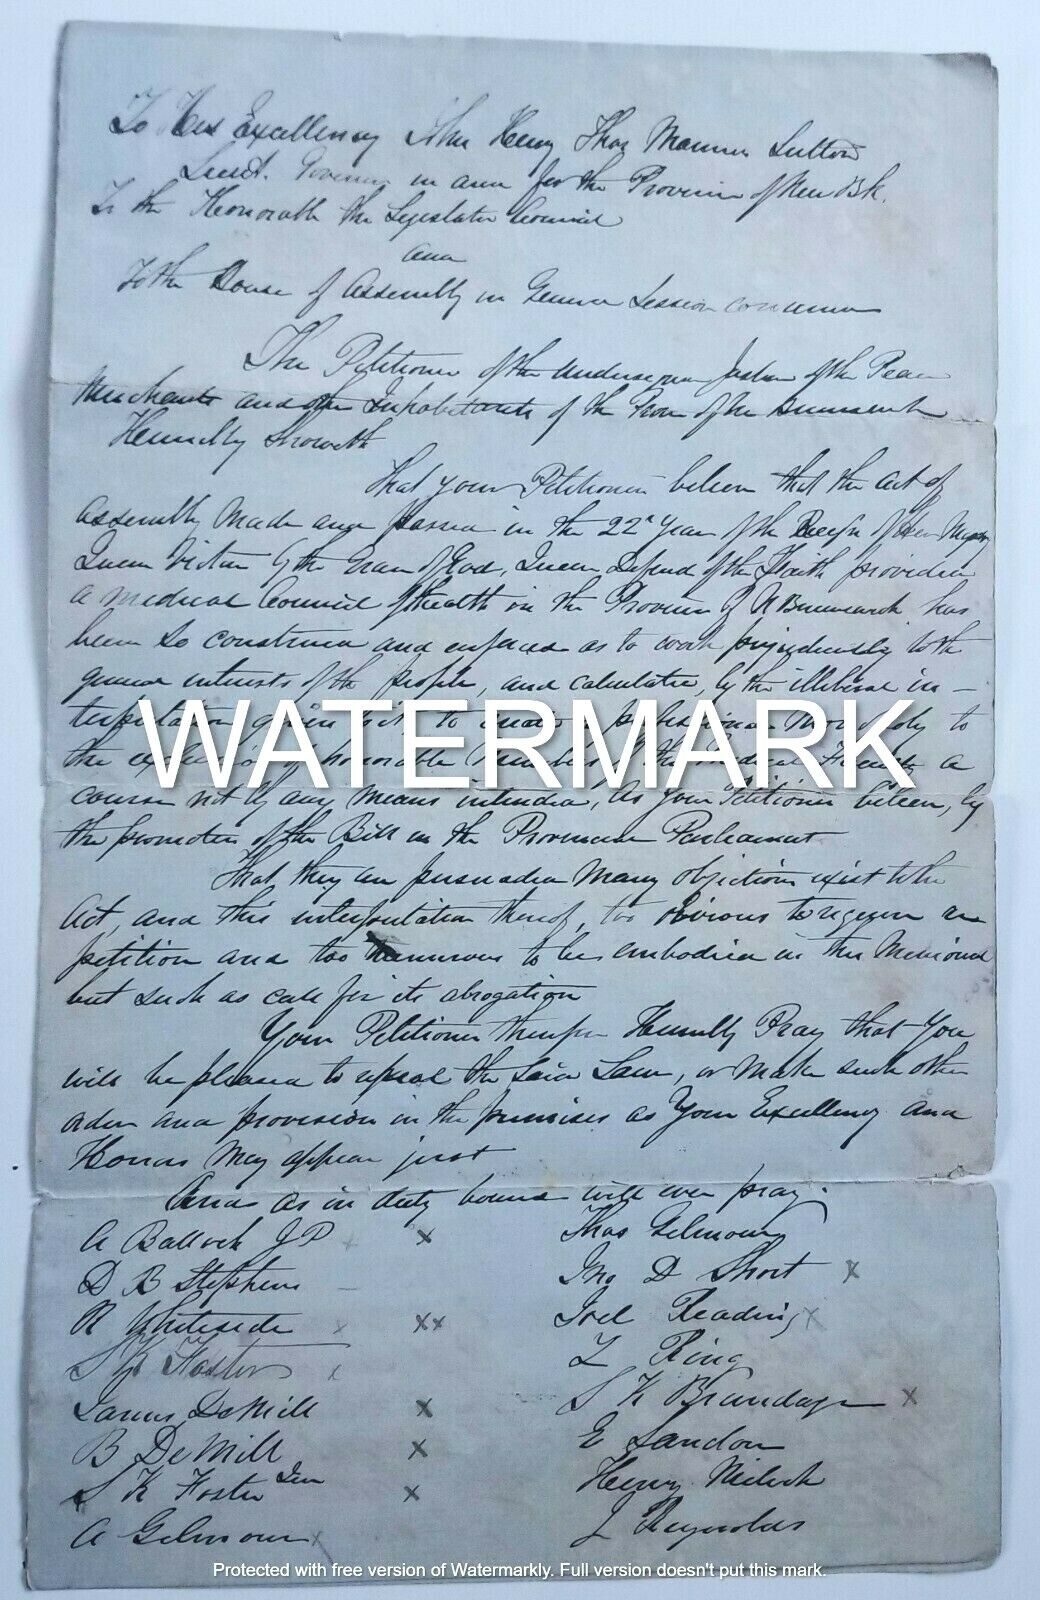 To His Excellency John Henry Thos Manners Sutton
Lieut. Governor in and for the Province of New Bk.
To the Honorable the Legislative Council
and
To the House of Assembly in General Session convened
The Petition of the undersigned Justices of the Peace
Merchants and other Inhabitants of the Prov of New Brunswick
Humbly Showeth
That your Petitioners believe that the act of
Assembly Made and passed in the 22d Year of the Reign of Her Majesty
Queen Victoria by the Grace of God, Queen Defender of the Faith providing
a medical Council of Health in the Province of N Brunswick has
been so construed and enforced as to work prejudicially to the
general interests of the people, and calculated, by the illiberal in-
terpretation given to it, to create a professional Monopoly to
the exclusion of honorable Members of the Medical Faculty a
course not by any means intended, as your Petitioners believe, by
the promoters of the Bill in the Provincial Parliament
That they are persuaded Many objections exist to the
Act, and this interpretation thereof, too obvious to require a
petition and too numerous to be embodied in this Memorial
but such as call for its abrogation
Your Petitioners therefore Humbly Pray that You
will be pleased to repeal the said Law, or Make such other
order and provision in the premises as Your Excellency and
Honors May appear just
And as in duty bound will ever pray.
A Ballock JP x x
Thos Gilmour
D B Stephens
Jno D Short x
R Whiteside x xx
Joel Reading x
S K Foster x
Z King
James DeMill x
S K Brundage x
B DeMill x
E Sandon
S K Foster Jun x
Henry
A Gilmour x
J Reynolds
WATERMARK
Protected with free version of Watermarkly. Full version doesn't put this mark.